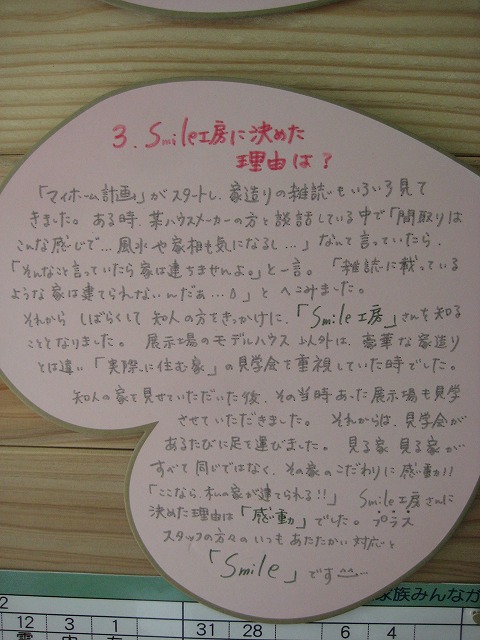 3. Smile工房に決めた
理由は？
「マイホーム計画」がスタートし、家造りの雑誌もいろいろ見て
きました。ある時、某ハウスメーカーの方と談話している中で「間取りは
こんな感じで…風水や家相も気になるし…」なんて言っていたら、
「そんなこと言っていたら家は建ちませんよ。」と一言。「雑誌に載っている
ような家は建てられないんだぁ…」とへこみました。
それから しばらくして 知人の方をきっかけに、「Smile工房」さんを知る
こととなりました。展示場のモデルハウス以外は、豪華な家造り
とは違い「実際に住む家」の見学会を重視していた時でした。
知人の家を見せていただいた後、その当時あった展示場も見学
させていただきました。それからは、見学会が
あるたびに足を運びました。見る家 見る家が
すべて同じではなく、その家のこだわりに感動!!
「ここなら、私の家が建てられる!!」 Smile工房さんに
決めた理由は「感動」でした。プラス
スタッフの方々のいつもあたたかい対応と
「Smile」です^^…
家族みんなが
2
12 3 1 31 28 6 4